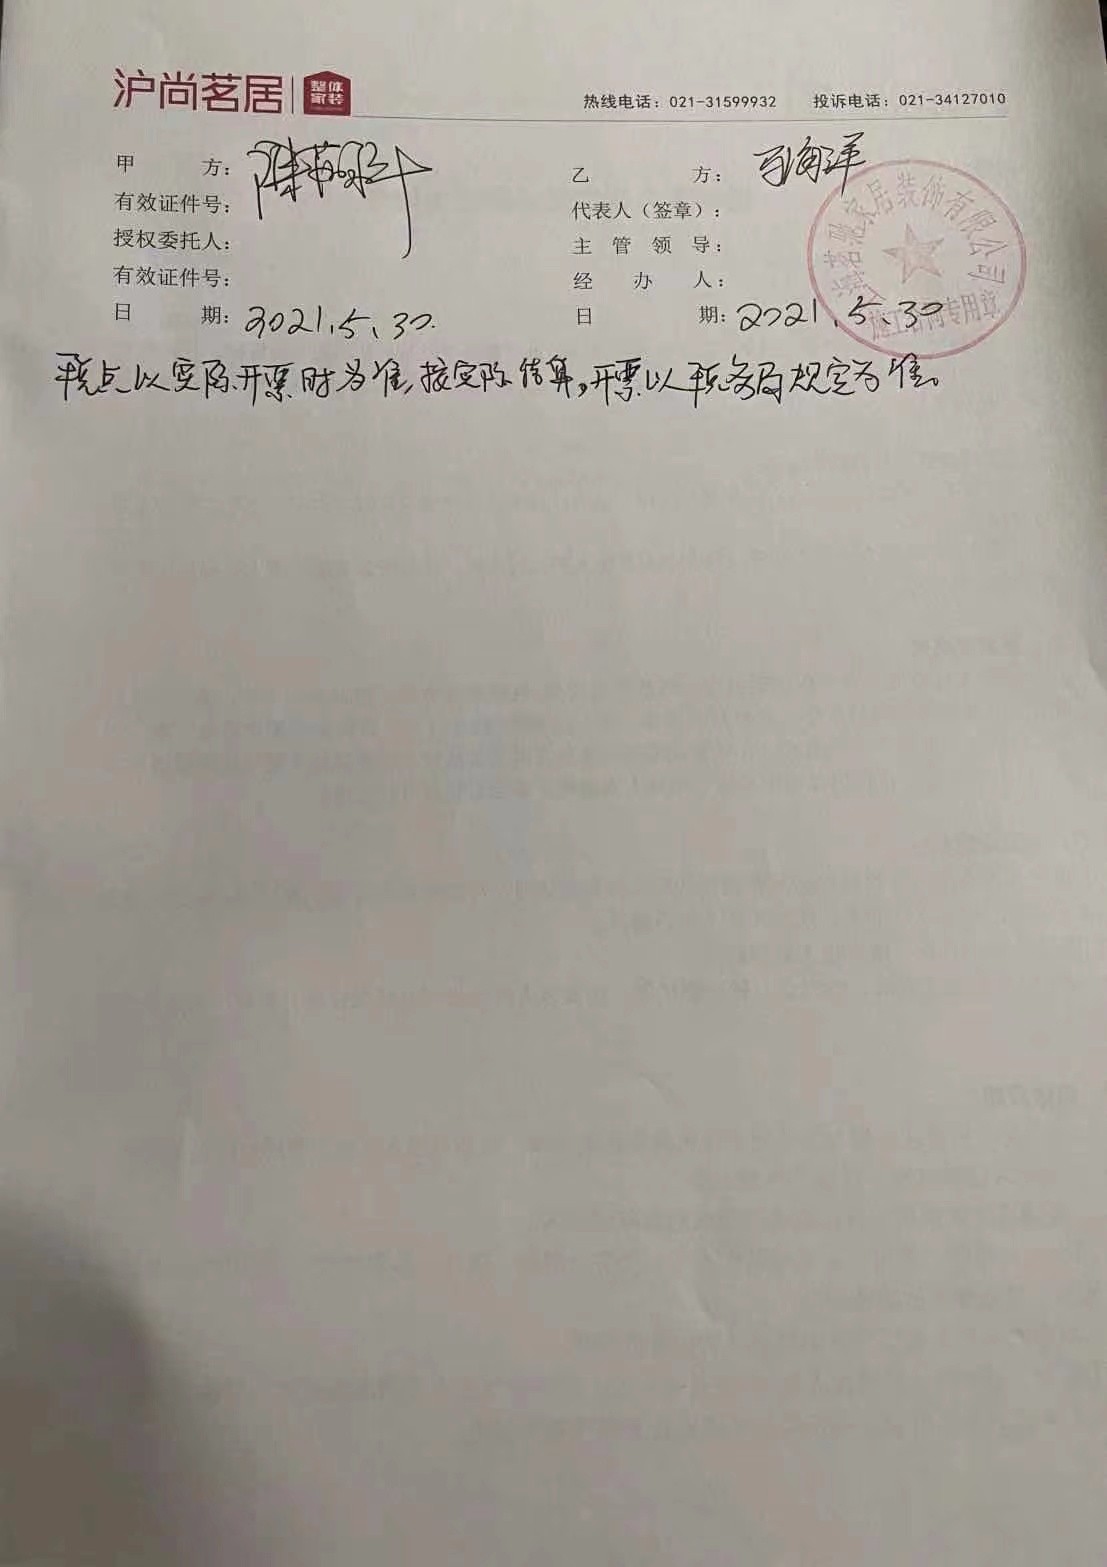 沪尚茗居 整体家装
热线电话：021-31599932 投诉电话：021-34127010
甲 方：
乙 方：马海洋
有效证件号：
代表人（签章）：
授权委托人：
主 管 领 导：
有效证件号：
经 办 人：
日 期：2021.5.30.
日 期：2021.5.30
居装饰有限公司
施工合同专用章
税点以实际开票时为准，按实际结算，开票以税务局规定为准。